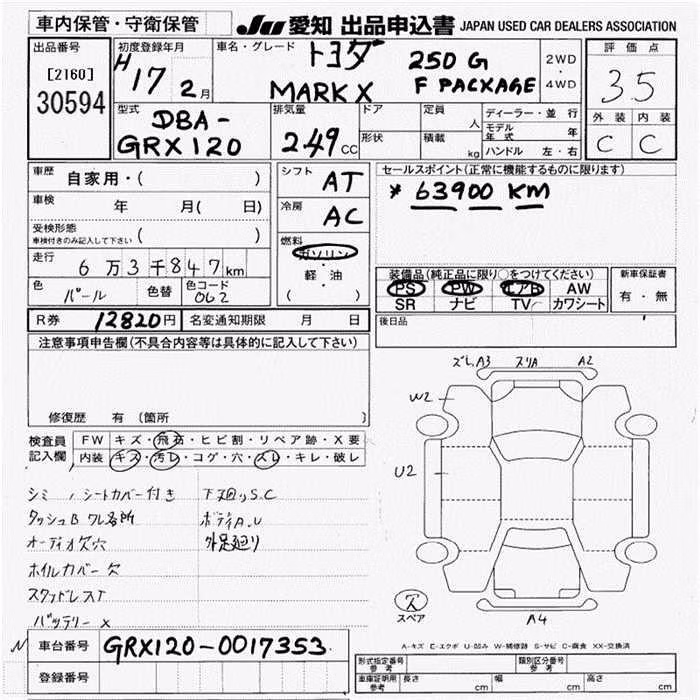 車内保管・守衛保管
JU 愛知 出品申込書 JAPAN USED CAR DEALERS ASSOCIATION
出品番号
[2160]
30594
初度登録年月
H17 2月
車名・グレード
トヨタ 250G
MARK X F PACKAGE
2WD
・
4WD
評価点
35
外装 内装
C C
型式
DBA-
GRX120
排気量
249 CC
ドア
形状
定員 人
積載 kg
ディーラー・並行
モデル年式 年
ハンドル 左・右
車歴 自家用・( )
車検 年 月( 日)
受検形態
車検付きのみ記入して下さい ( )
走行 6万3千847km
色 パール 色替 色コード 062
シフト AT
冷房 AC
燃料
ガソリン
・
軽・油
( )
セールスポイント(正常に機能するものに限ります)
* 63900 KM
装備品(純正品に限り○をつけてください)
PS PW エアB AW
SR ナビ TV カワシート
新車保証書
有・無
後日品
R券 12820円 名変通知期限 月 日
注意事項申告欄(不具合内容等は具体的に記入して下さい)
修復歴 有〔箇所 〕
検査員
記入欄
FW キズ・飛石・ヒビ割・リペア跡・X要
内装 キズ・汚レ・コゲ・穴・スレ・キレ・破レ
シミ シートカバー付き 下廻りS.C
ダッシュB ワレ各所 ボディA.U
オーディオ欠穴 外足廻り
ホイルカバー欠
スタッドレスT
バッテリーX
ズレ、A3 スリA A2
W2
U2
欠
スペア
A4
A-キズ E-エクボ U-凹み W-補修跡 S-サビ C-腐食 XX-交換済
N
車台番号 GRX120-0017353
登録番号
形式指定番号 参考
類別区分番号 参考
車庫証明用 参考 長さ cm 幅 cm 高さ cm